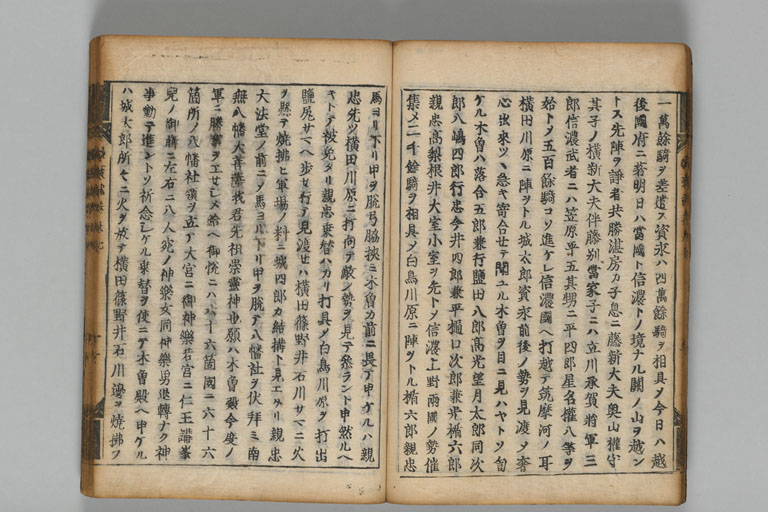 一萬餘騎ヲ差遣ス資永ハ四萬餘騎ヲ相具メ今日ハ越
後國府ニ著明日ハ當國ト信濃トノ境ナル關ノ山ヲ越ン
トス先陣ヲ諍者共勝湛房カ子息ニ藤新大夫奥山權守
其子ノ横新大夫伴藤別當家子ニハ立川承賀將軍三
郎信濃武者ニハ笠原平五其甥ニ平四郎星名權八等ヲ
始トメ五百餘騎コソ進ケレ信濃國ヘ打越テ筑摩河ノ耳
横田川原ニ陣ヲトル城太郎資永前後ノ勢ヲ見渡メ奢
心出來ツヽ急キ寄合セテ聞ユル木曽ヲ目ニ見ハヤトソ訇
ケル木曽ハ落合五郎兼行鹽田八郎高光望月太郎同次
郎八嶋四郎行忠今井四郎兼平樋口次郎兼光楯六郎
親忠高梨根井大室小室ヲ先トメ信濃上野兩國ノ勢催
集メ二千餘騎ヲ相具メ白鳥川原ニ陣ヲトル楯六郎親忠
馬ヨリ下リ甲ヲ脱弓脇挾ミ木曽カ前ニ畏テ申ケルハ親
忠先ツ横田川原ニ打向テ敵ノ勢ヲ見テ參ラント申然ルヘ
キトテ被免タリ親忠乗替ハカリ打具メ白鳥川原ヲ打出
鹽尻サヘヘ歩セ行テ見渡セハ横田篠野井石川サヘニ火
ヲ懸テ焼拂ヒ軍場ノ料ニ城四郎カ結構ト見エタリ親忠
大法堂ノ前ニメ馬ヨリ下リ甲ヲ脱テ八幡社ヲ伏拜ミ南
無八幡大菩薩我君先祖崇靈神也願ハ木曽殿今度ノ
軍ニ勝事ヲエセシメ給ヘ御悦ニハ六十六箇國ニ六十六
箇所ノ八幡社領ヲ立テ大宮ニ御神樂若宮ニ仁王講峯
兒ノ御前ニ左右ニ八人完ノ神樂女同神樂男退轉ナク神
事勤テ進ントソ祈念シケル乗替ヲ使ニテ木曽殿ヘ申ケル
ハ城太郎所々ニ火ヲ放テ横田篠野井石川邊ヲ焼拂フ